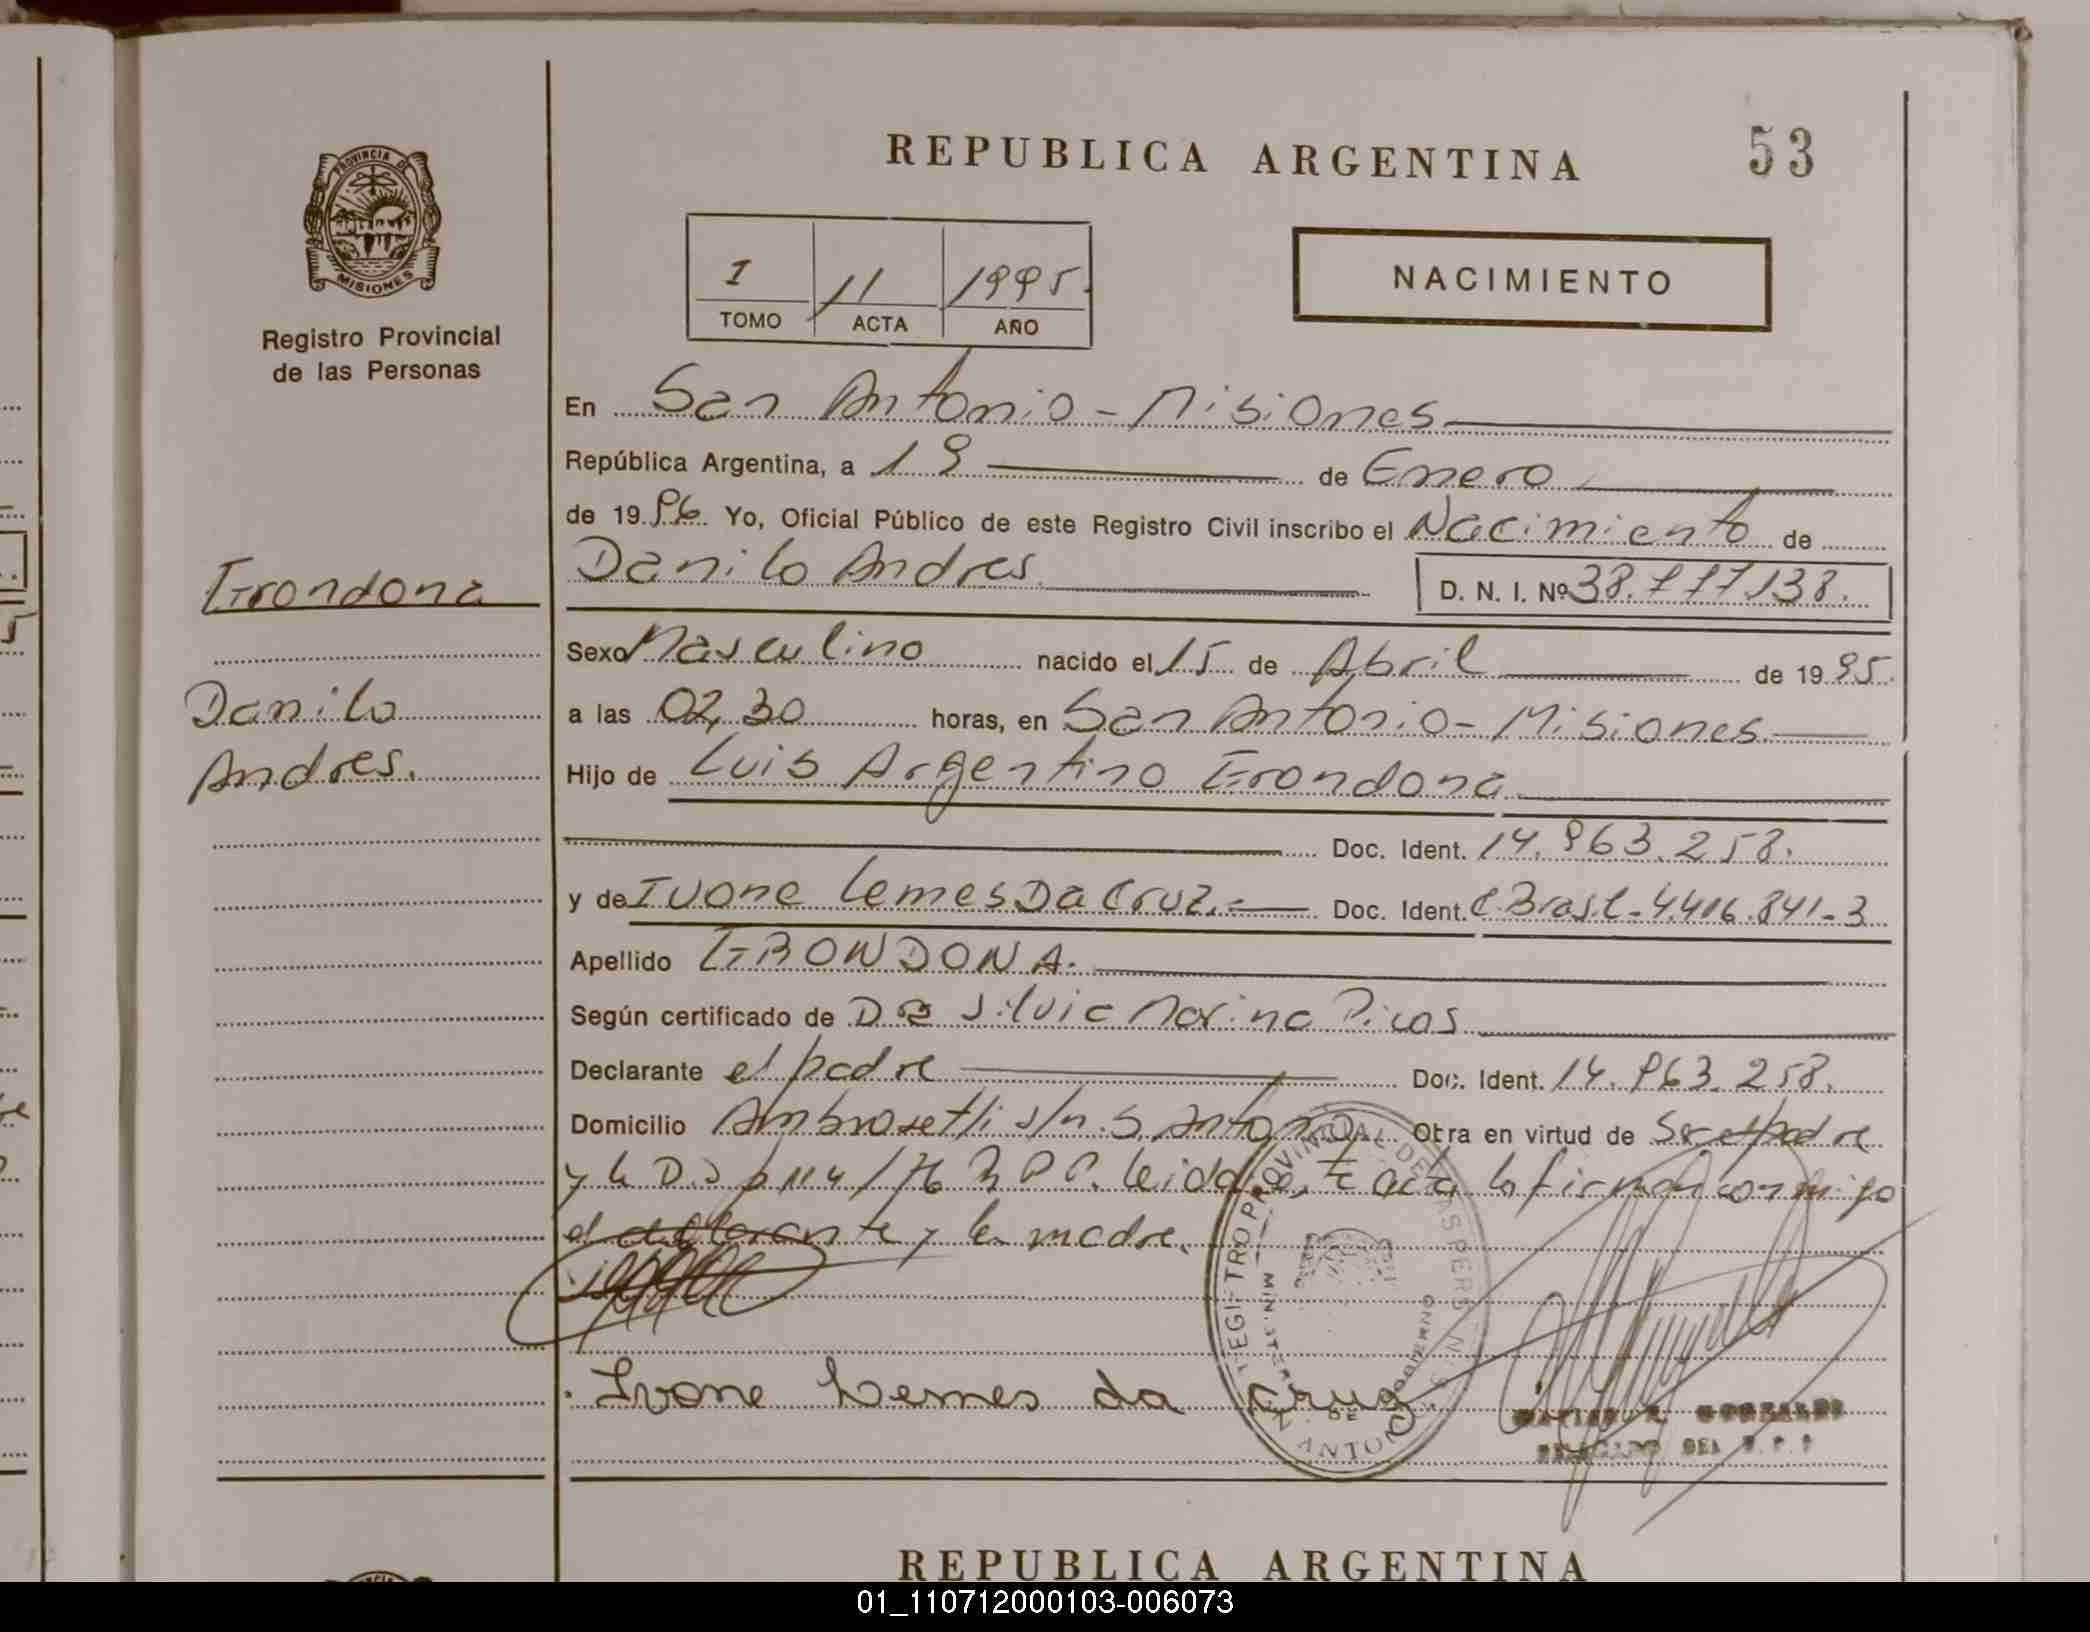 REPUBLICA ARGENTINA
53
PROVINCIA DE
MISIONES
Registro Provincial
de las Personas
I 11 1995.
TOMO ACTA AÑO
NACIMIENTO
En San Antonio - Misiones
República Argentina, a 19 de Enero
de 1996 Yo, Oficial Público de este Registro Civil inscribo el Nacimiento de
Danilo Andres
D. N. I. Nº 38.777.138.
Grondona
Danilo
Andres.
Sexo Masculino nacido el 15 de Abril de 1995.
a las 02,30 horas, en San Antonio - Misiones
Hijo de Luis Argentino Grondona
Doc. Ident. 14.963.258.
y de Ivone Lemes Da Cruz.- Doc. Ident. C Brasil-4.416.841-3
Apellido GRONDONA.
Según certificado de Dra Silvia Marina Picas
Declarante el padre Doc. Ident. 14.963.258.
Domicilio Ambrosetti s/n. S. Antonio. Otra en virtud de Ser el padre
y la D.J p 114/76 R P P. leida el acta la firman conmigo
el declarante y la madre.
Ivone Lemes da Cruz
REGISTRO PROVINCIAL DE LAS PERSONAS
MINISTERIO DE GOBIERNO
ANTONIO
GONZALEZ
DELEGADO DEL R.P.P
REPUBLICA ARGENTINA
01_110712000103-006073